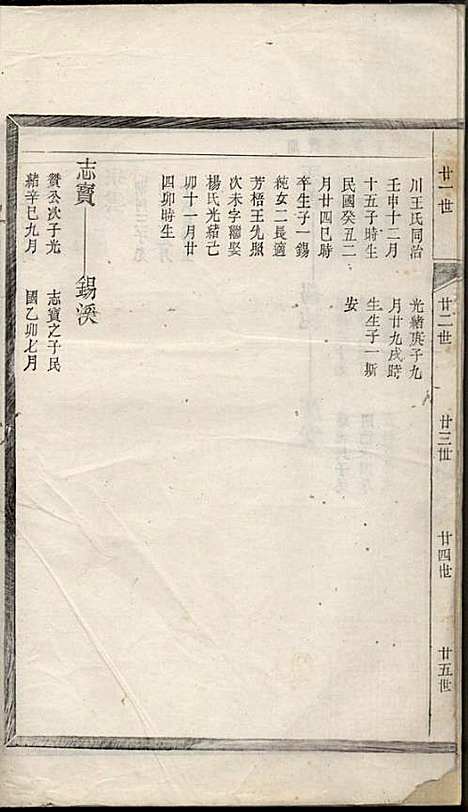 廿一世
廿二世
廿三世
廿四世
廿五世
川王氏同治
壬申十二月
十五子時生
民國癸丑二
月廿四巳時
卒生子一錫
純女二長適
芳梧王先照
次未字繼娶
楊氏光緒己
卯十一月廿
四卯時生
光緒庚子九
月廿九戌時
生生子一斯
安
志寶
錫渙
贊公次子光
緒辛巳九月
志寶之子民
國乙卯七月